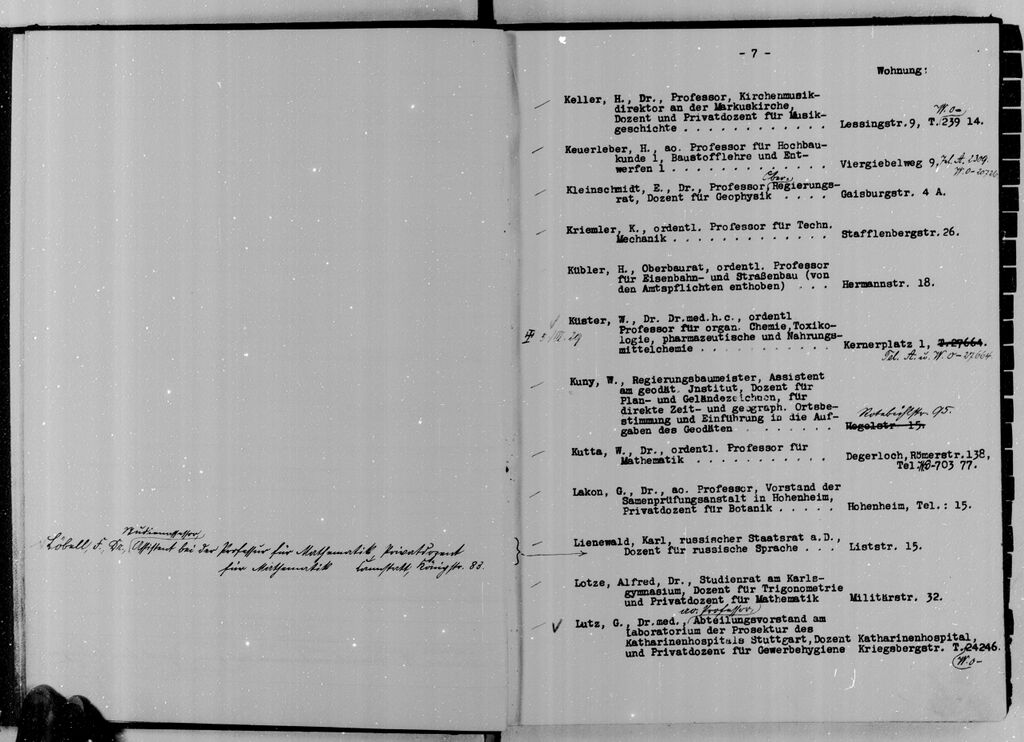 Studienassessor
Löbell, F. Dr., Assistent bei der Professur für Mathematik, Privatdozent
für Mathematik Cannstatt, Königstr. 83.
- 7 -
Wohnung:
Keller, H., Dr., Professor, Kirchenmusik-
direktor an der Markuskirche,
Dozent und Privatdozent für Musik-
W.o-
geschichte . . . . . . . . . . . . Lessingstr. 9, T.239 14.
Keuerleber, H., ao. Professor für Hochbau-
kunde 1, Baustofflehre und Ent-
werfen 1 . . . . . . . . . . . . . Viergiebelweg 9, Tel. A. 2309.
W.o-20726
Ober-
Kleinschmidt, E., Dr., Professor, Regierungs-
rat, Dozent für Geophysik . . . . Gaisburgstr. 4 A.
Kriemler, K., ordentl. Professor für Techn.
Mechanik . . . . . . . . . . . . . Stafflenbergstr. 26.
Kübler, H., Oberbaurat, ordentl. Professor
für Eisenbahn- und Straßenbau (von
den Amtspflichten enthoben) . . . Hermannstr. 18.
Küster, W., Dr. Dr.med.h.c., ordentl
Professor für organ. Chemie, Toxiko-
logie, pharmazeutische und Nahrungs-
mittelchemie . . . . . . . . . . . Kernerplatz 1, T.27664.
Tel. A. u. W.o-27664.
Kuny, W., Regierungsbaumeister, Assistent
am geodät. Jnstitut, Dozent für
Plan- und Geländezeichnen, für
direkte Zeit- und geograph. Ortsbe-
stimmung und Einführung in die Auf-
gaben des Geodäten . . . . . . . Hegelstr 15.
Rotebühlstr. 95.
Kutta, W., Dr., ordentl. Professor für
Mathematik . . . . . . . . . . . Degerloch, Römerstr. 138,
Tel. W.o-703 77.
Lakon, G., Dr., ao. Professor, Vorstand der
Samenprüfungsanstalt in Hohenheim,
Privatdozent für Botanik . . . . . Hohenheim, Tel.: 15.
Lienewald, Karl, russischer Staatsrat a.D.,
Dozent für russische Sprache . . . Liststr. 15.
Lotze, Alfred, Dr., Studienrat am Karls-
gymnasium, Dozent für Trigonometrie
und Privatdozent für Mathematik Militärstr. 32.
ao. Professor,
Lutz, G., Dr.med., Abteilungsvorstand am
Laboratorium der Prosektur des
Katharinenhospitals Stuttgart, Dozent Katharinenhospital,
und Privatdozent für Gewerbehygiene Kriegsbergstr. T.24246.
W.o-